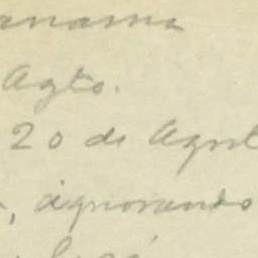 anama
Agto.
20 de Agost
, ignorando